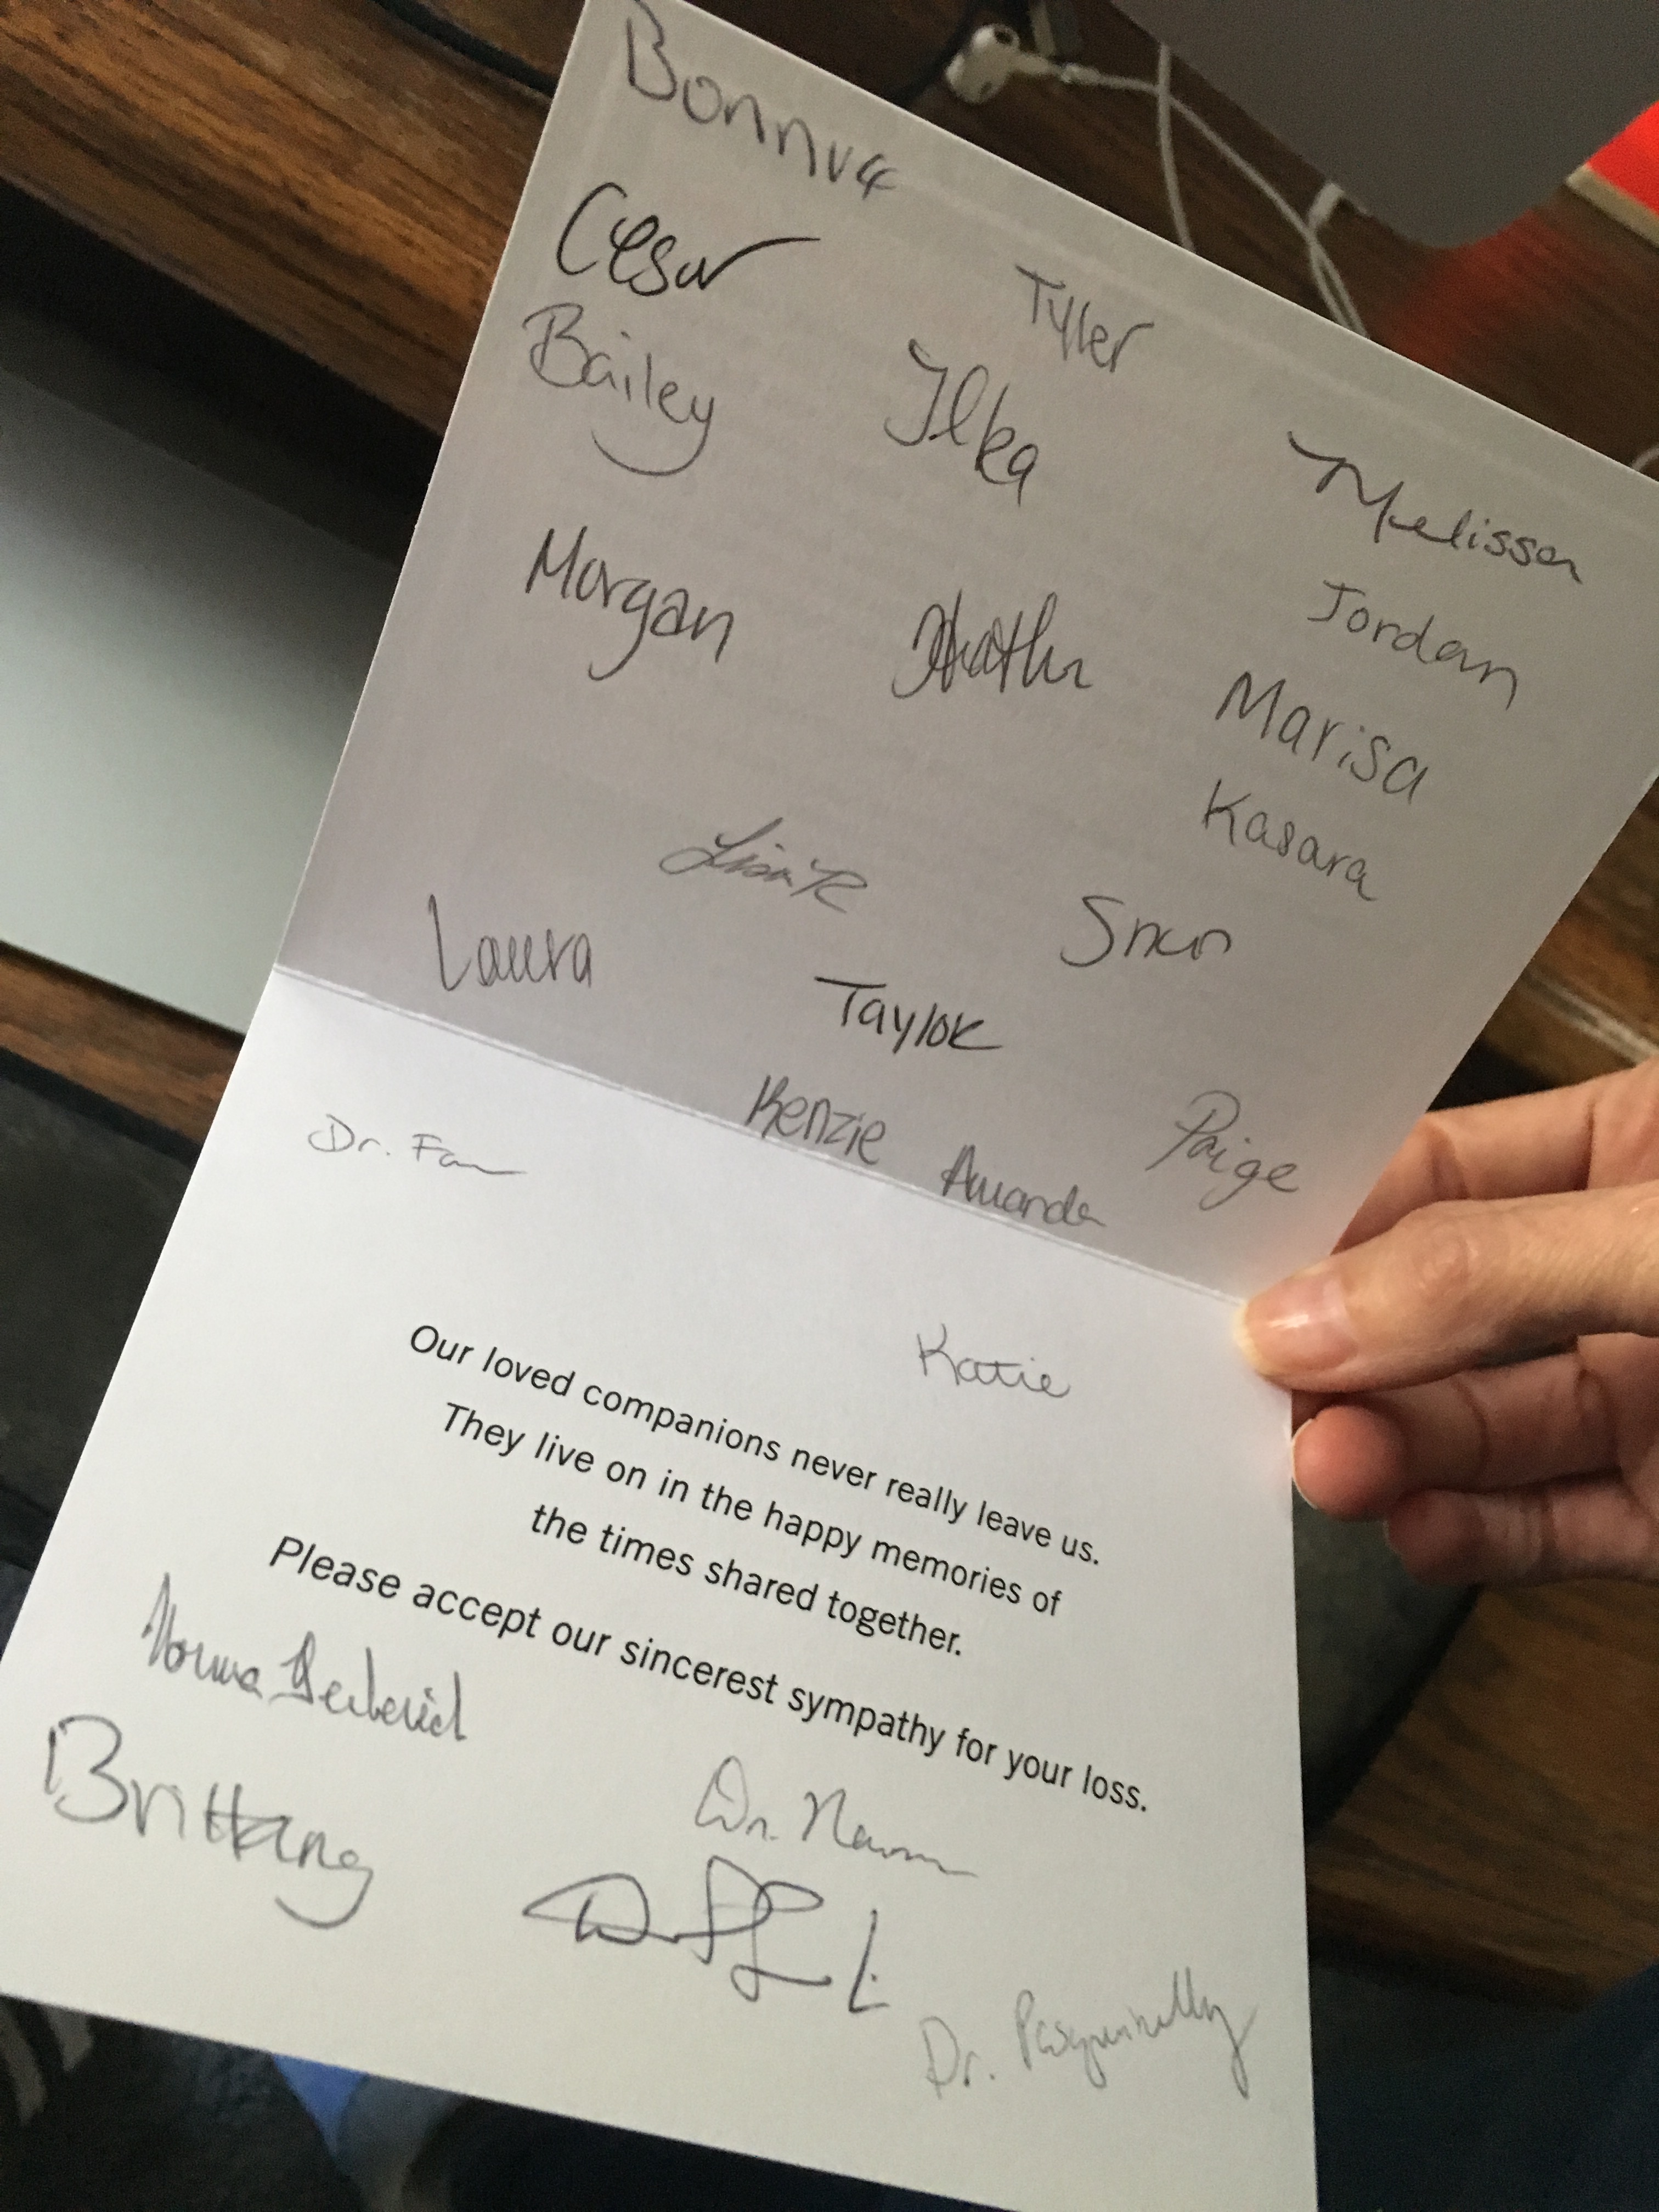 Bonnie
Cesar
Tyler
Bailey
Ilka
Melissa
Morgan
Jordan
Marisa
Kasara
Lisa R
Laura
Taylor
Kenzie
Amanda
Paige
Dr.
Katie
Our loved companions never really leave us.
They live on in the happy memories of
the times shared together.
Please accept our sincerest sympathy for your loss.
Norma
Brittany
Dr.
Dr.